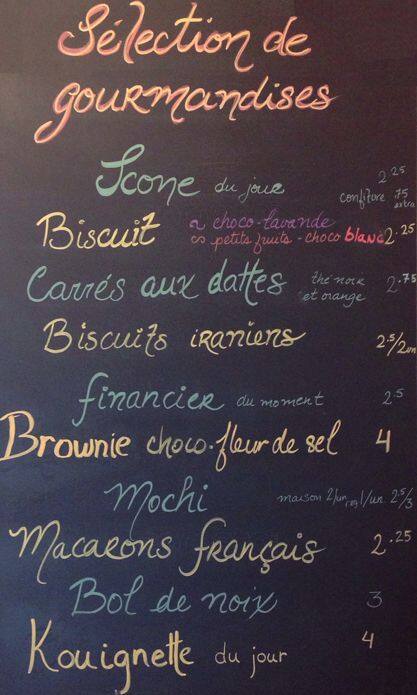 Sélection de
gourmandises
Scone du jour 2.25
confiture .75 extra
Biscuit ~ choco-lavande
∞ petits fruits - choco blanc 2.25
Carrés aux dattes thé noir et orange 2.75
Biscuits iraniens 2.5/2un
financier du moment 2.5
Brownie choco-fleur de sel 4
Mochi maison 2/un 2.5/3
Macarons français 2.25
Bol de noix 3
Kouignette du jour 4